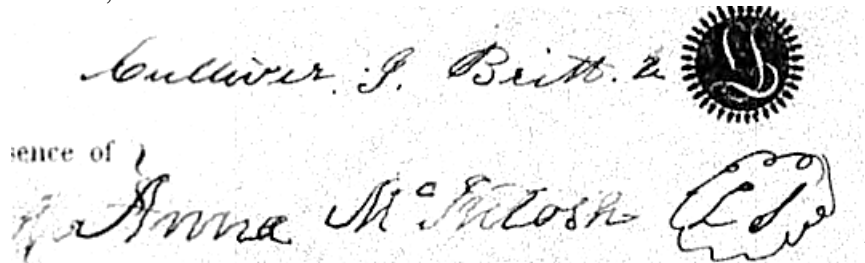 Culliver. J. Britt. LS
sence of }
Anna McIntosh LS